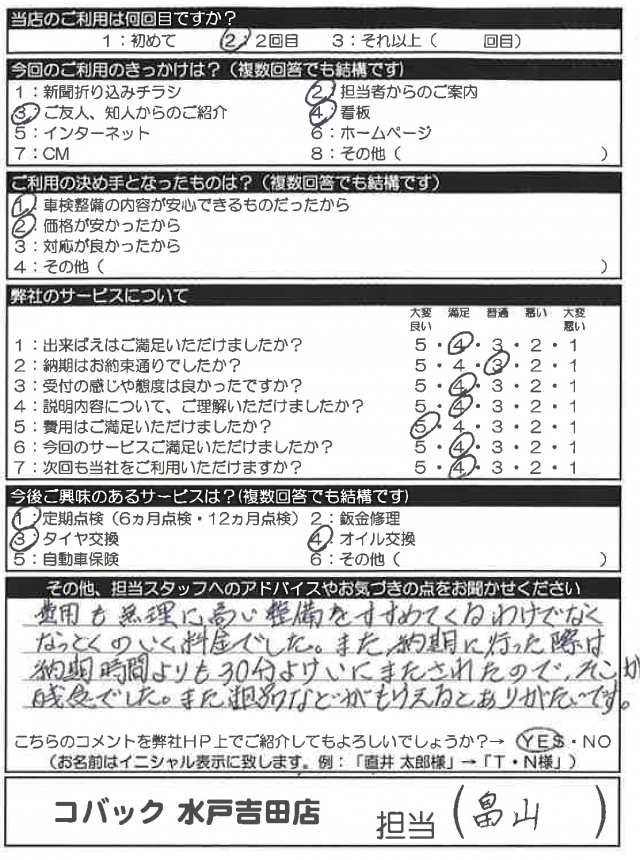 当店のご利用は何回目ですか？
1：初めて　2：2回目　3：それ以上（　　回目）
今回のご利用のきっかけは？（複数回答でも結構です）
1：新聞折り込みチラシ　2：担当者からのご案内
3：ご友人、知人からのご紹介　4：看板
5：インターネット　6：ホームページ
7：CM　8：その他（　　）
ご利用の決め手となったものは？（複数回答でも結構です）
1：車検整備の内容が安心できるものだったから
2：価格が安かったから
3：対応が良かったから
4：その他（　　）
弊社のサービスについて
大変良い　満足　普通　悪い　大変悪い
1：出来ばえはご満足いただけましたか？　5・4・3・2・1
2：納期はお約束通りでしたか？　5・4・3・2・1
3：受付の感じや態度は良かったですか？　5・4・3・2・1
4：説明内容について、ご理解いただけましたか？　5・4・3・2・1
5：費用はご満足いただけましたか？　5・4・3・2・1
6：今回のサービスご満足いただけましたか？　5・4・3・2・1
7：次回も当社をご利用いただけますか？　5・4・3・2・1
今後ご興味のあるサービスは？（複数回答でも結構です）
1：定期点検（6ヵ月点検・12ヵ月点検）　2：鈑金修理
3：タイヤ交換　4：オイル交換
5：自動車保険　6：その他（　　）
その他、担当スタッフへのアドバイスやお気づきの点をお聞かせください
費用も無理に高い整備をすすめてくるわけでなく
なっとくのいく料金でした。また、納期に行った際は
納期時間よりも30分よけいにまたされたので、そこが
残念でした。また割引などがもらえるとありがたいです。
こちらのコメントを弊社HP上でご紹介してもよろしいでしょうか？→　YES・NO
（お名前はイニシャル表示に致します。例：「直井 太郎様」→「T・N様」）
コバック 水戸吉田店　担当（畠山　）